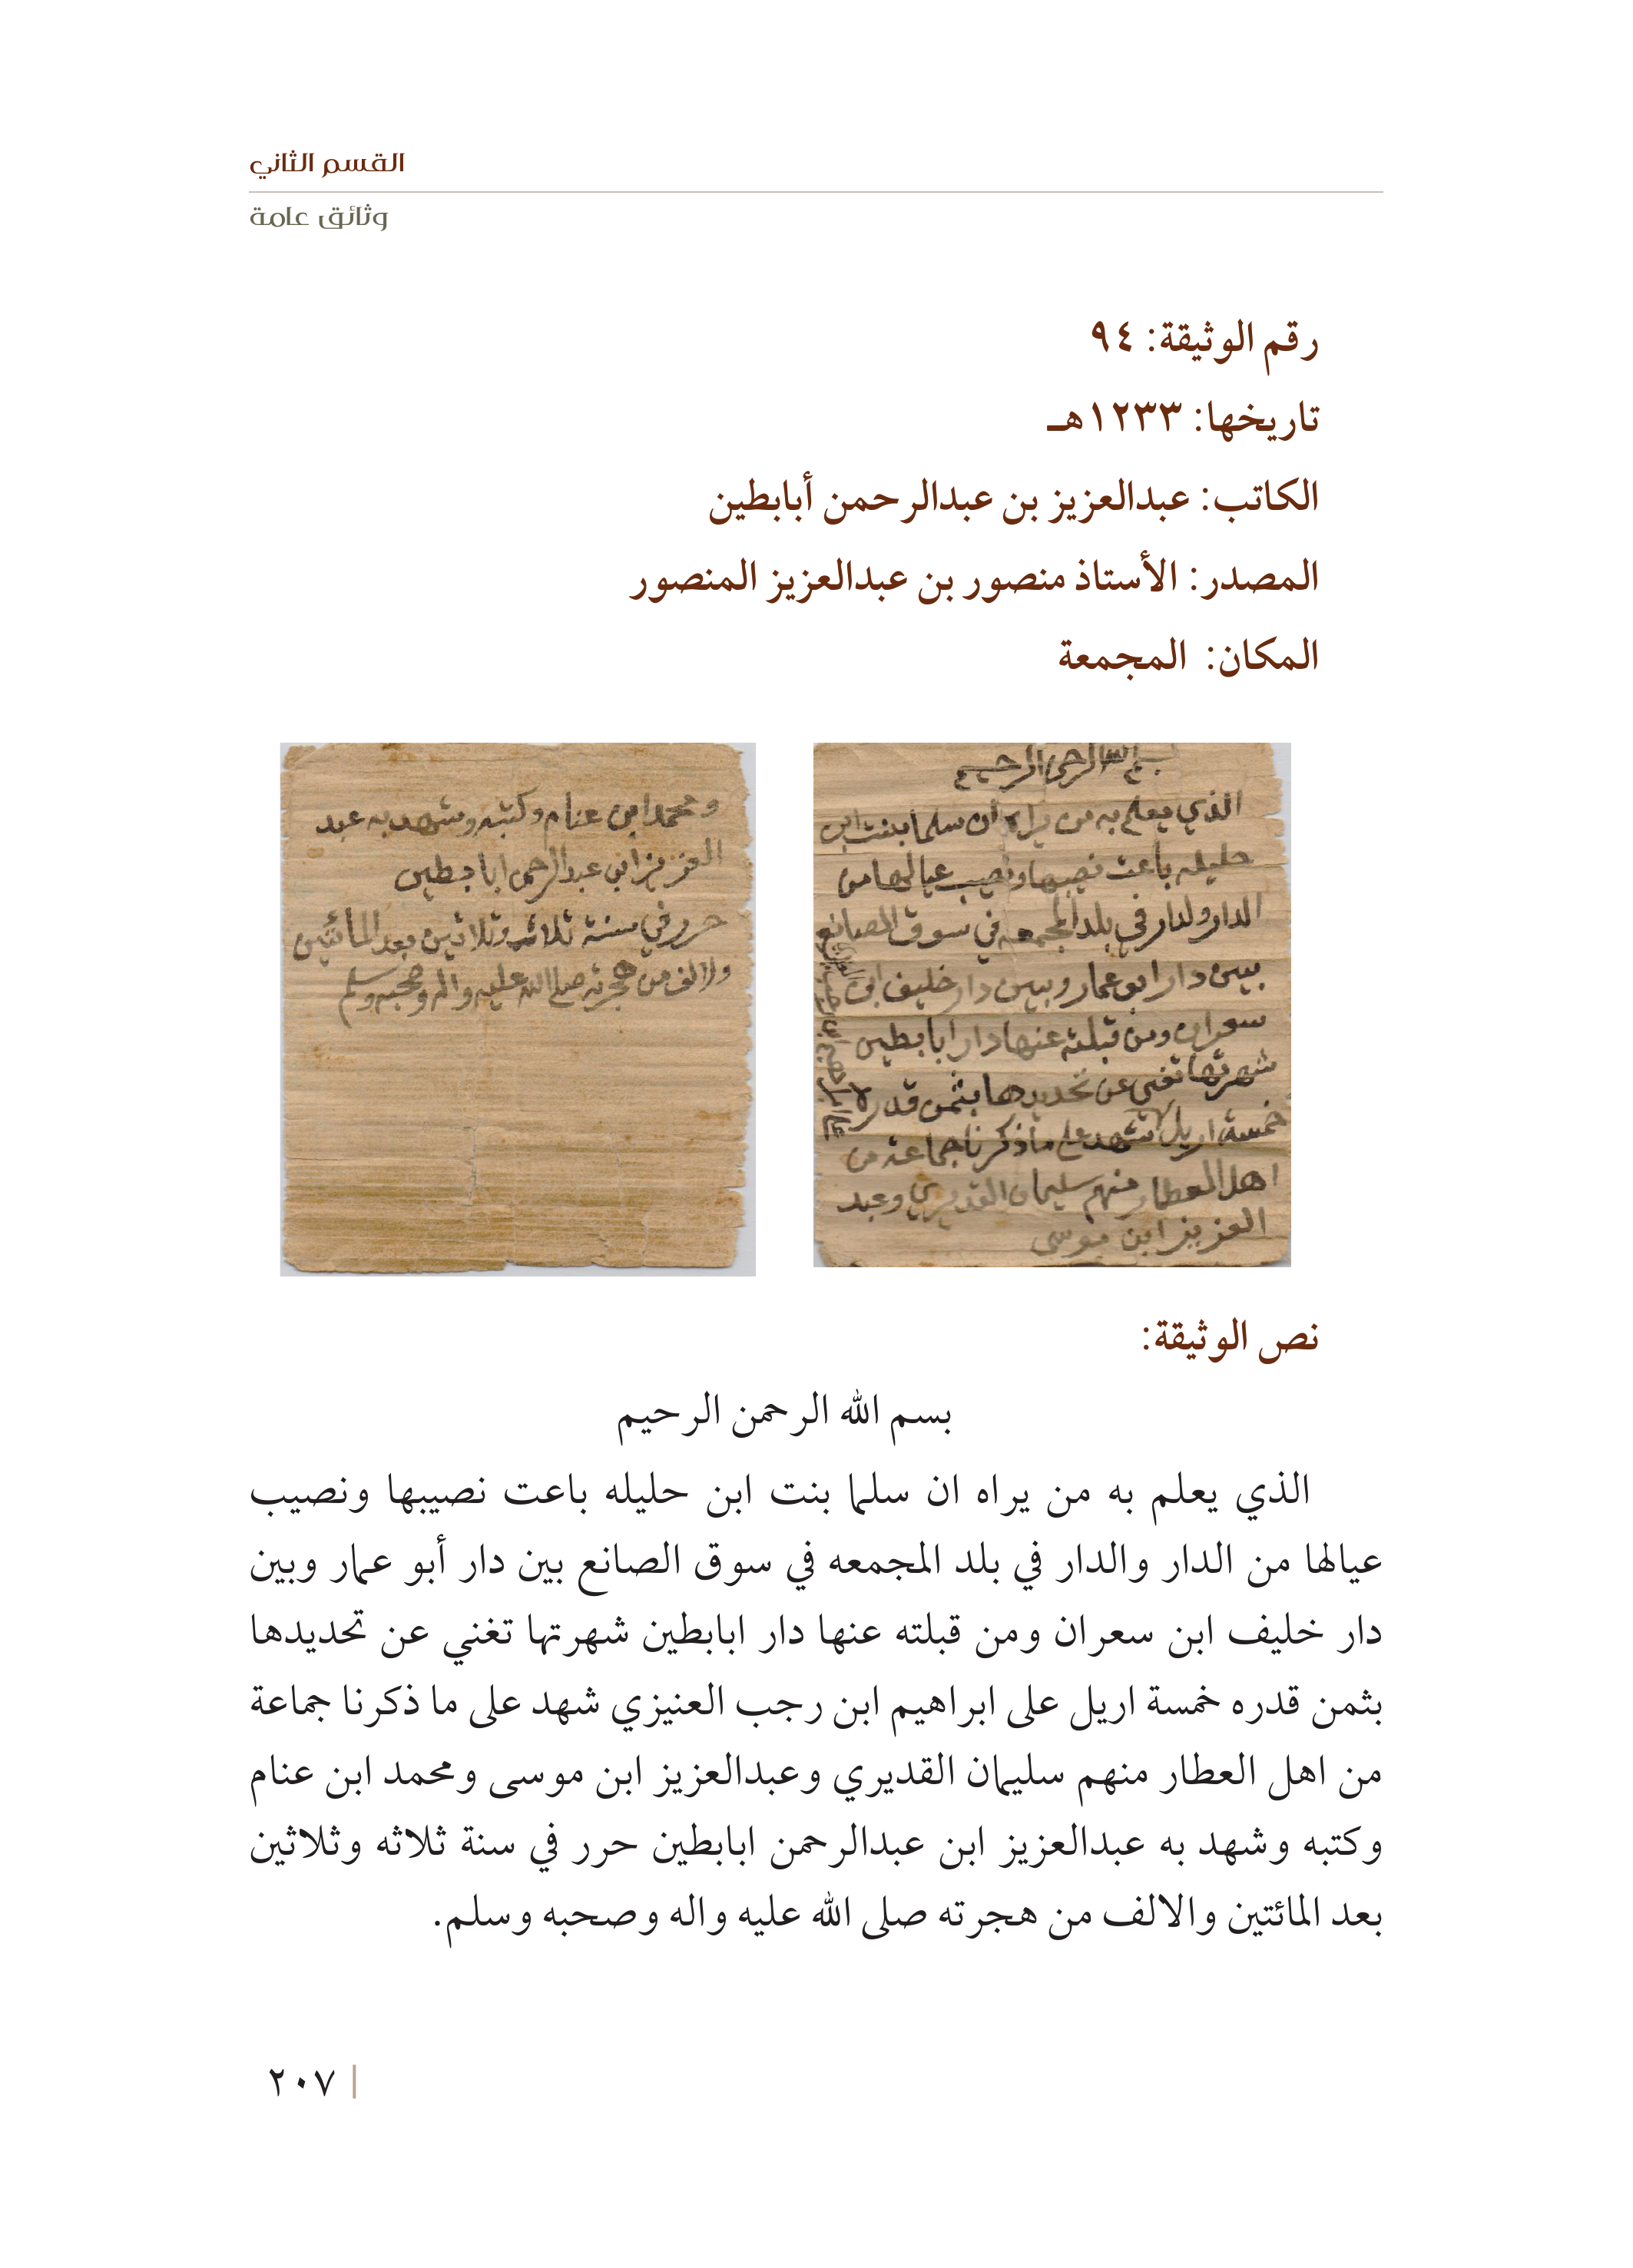 القسم الثاني
وثائق عامة
رقم الوثيقة: ٩٤
تاريخها: ١٢٣٣هـ
الكاتب: عبدالعزيز بن عبدالرحمن أبابطين
المصدر: الأستاذ منصور بن عبدالعزيز المنصور
المكان: المجمعة
بسم الله الرحمن الرحيم
الذي يعلم به من يراه ان سلما بنت ابن
حليله باعت نصيبها ونصيب عيالها من
الدار ولدار في بلد المجمعه في سوق الصانع
بين دار ابو عمار وبين دار خليف ابن
سعران ومن قبلته عنها دار ابابطين
شهرتها تغني عن تحديدها بثمن قدره
خمسة اريل شهد على ما ذكرنا جماعة من
اهل العطار منهم سليمان القديري وعبد
العزيز ابن موسى
ومحمد ابن عنام وكتبه وشهد به عبد
العزيز ابن عبدالرحمن ابابطين
حرر في سنة ثلاثه وثلاثين بعد المائتين
ولالف من هجرته صلى الله عليه واله وصحبه وسلم
نص الوثيقة:
بسم الله الرحمن الرحيم
الذي يعلم به من يراه ان سلما بنت ابن حليله باعت نصيبها ونصيب
عيالها من الدار والدار في بلد المجمعه في سوق الصانع بين دار أبو عمار وبين
دار خليف ابن سعران ومن قبلته عنها دار ابابطين شهرتها تغني عن تحديدها
بثمن قدره خمسة اريل على ابراهيم ابن رجب العنيزي شهد على ما ذكرنا جماعة
من اهل العطار منهم سليمان القديري وعبدالعزيز ابن موسى ومحمد ابن عنام
وكتبه وشهد به عبدالعزيز ابن عبدالرحمن ابابطين حرر في سنة ثلاثه وثلاثين
بعد المائتين والالف من هجرته صلى الله عليه واله وصحبه وسلم.
٢٠٧